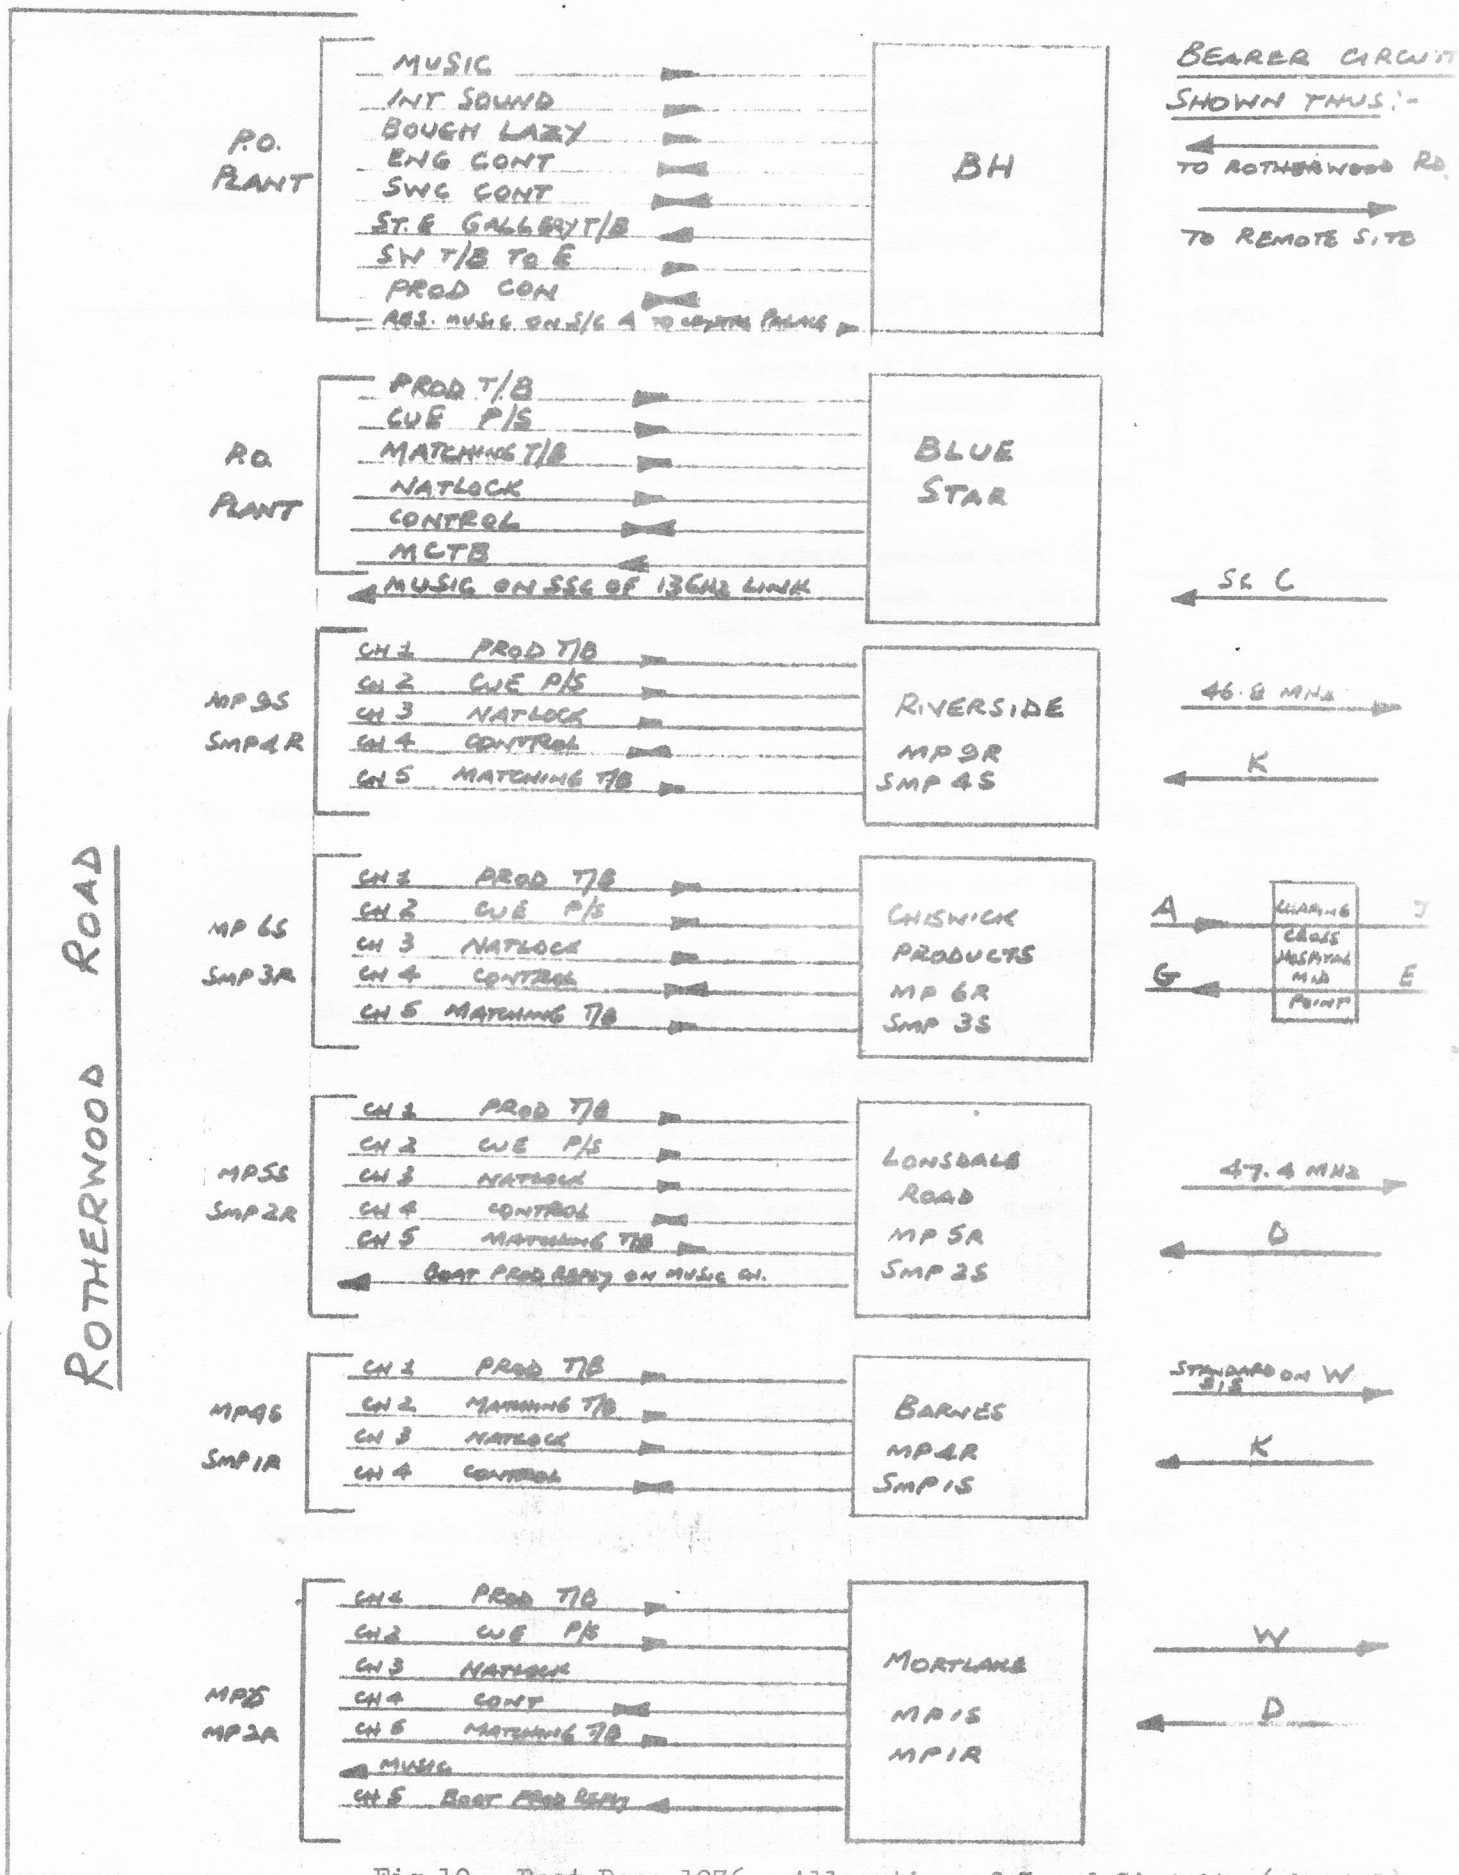 BEARER CIRCUIT
SHOWN THUS:-
TO ROTHERWOOD RD.
TO REMOTE SITE
ROTHERWOOD ROAD
P.O.
PLANT
MUSIC
INT SOUND
BOUGH LAZY
ENG CONT
SWC CONT
ST. E GALLERY T/B
SW T/B TO E
PROD CON
RES. MUSIC ON S/C A TO CRYSTAL PALACE
BH
PLANT
PROD T/B
CUE P/S
MATCHING T/B
NATLOCK
CONTROL
MCTB
MUSIC ON SSC OF 13GHZ LINK
BLUE
STAR
SC C
MP 9S
SMP4R
CH 1 PROD T/B
CH 2 CUE P/S
CH 3 NATLOCK
CH 4 CONTROL
CH 5 MATCHING T/B
RIVERSIDE
MP 9R
SMP 4S
46.8 MHZ
K
MP 6S
SMP 3R
CH 1 PROD T/B
CH 2 CUE P/S
CH 3 NATLOCK
CH 4 CONTROL
CH 5 MATCHING T/B
CHISWICK
PRODUCTS
MP 6R
SMP 3S
A
G
CHARING
CROSS
HOSPITAL
MID
POINT
E
MP5S
SMP2R
CH 1 PROD T/B
CH 2 CUE P/S
CH 3 NATLOCK
CH 4 CONTROL
CH 5 MATCHING T/B
BOAT PROD REPLY ON MUSIC CH.
LONSDALE
ROAD
MP 5R
SMP 2S
47.4 MHZ
D
MP4S
SMP1R
CH 1 PROD T/B
CH 2 MATCHING T/B
CH 3 NATLOCK
CH 4 CONTROL
BARNES
MP4R
SMP1S
STANDARD ON W
K
MP2R
CH 1 PROD T/B
CH 2 CUE P/S
CH 3 NATLOCK
CH 4 CONT
MATCHING T/B
MUSIC
CH 5 BOAT PROD REPLY
MORTLAKE
MP1S
MP1R
W
D